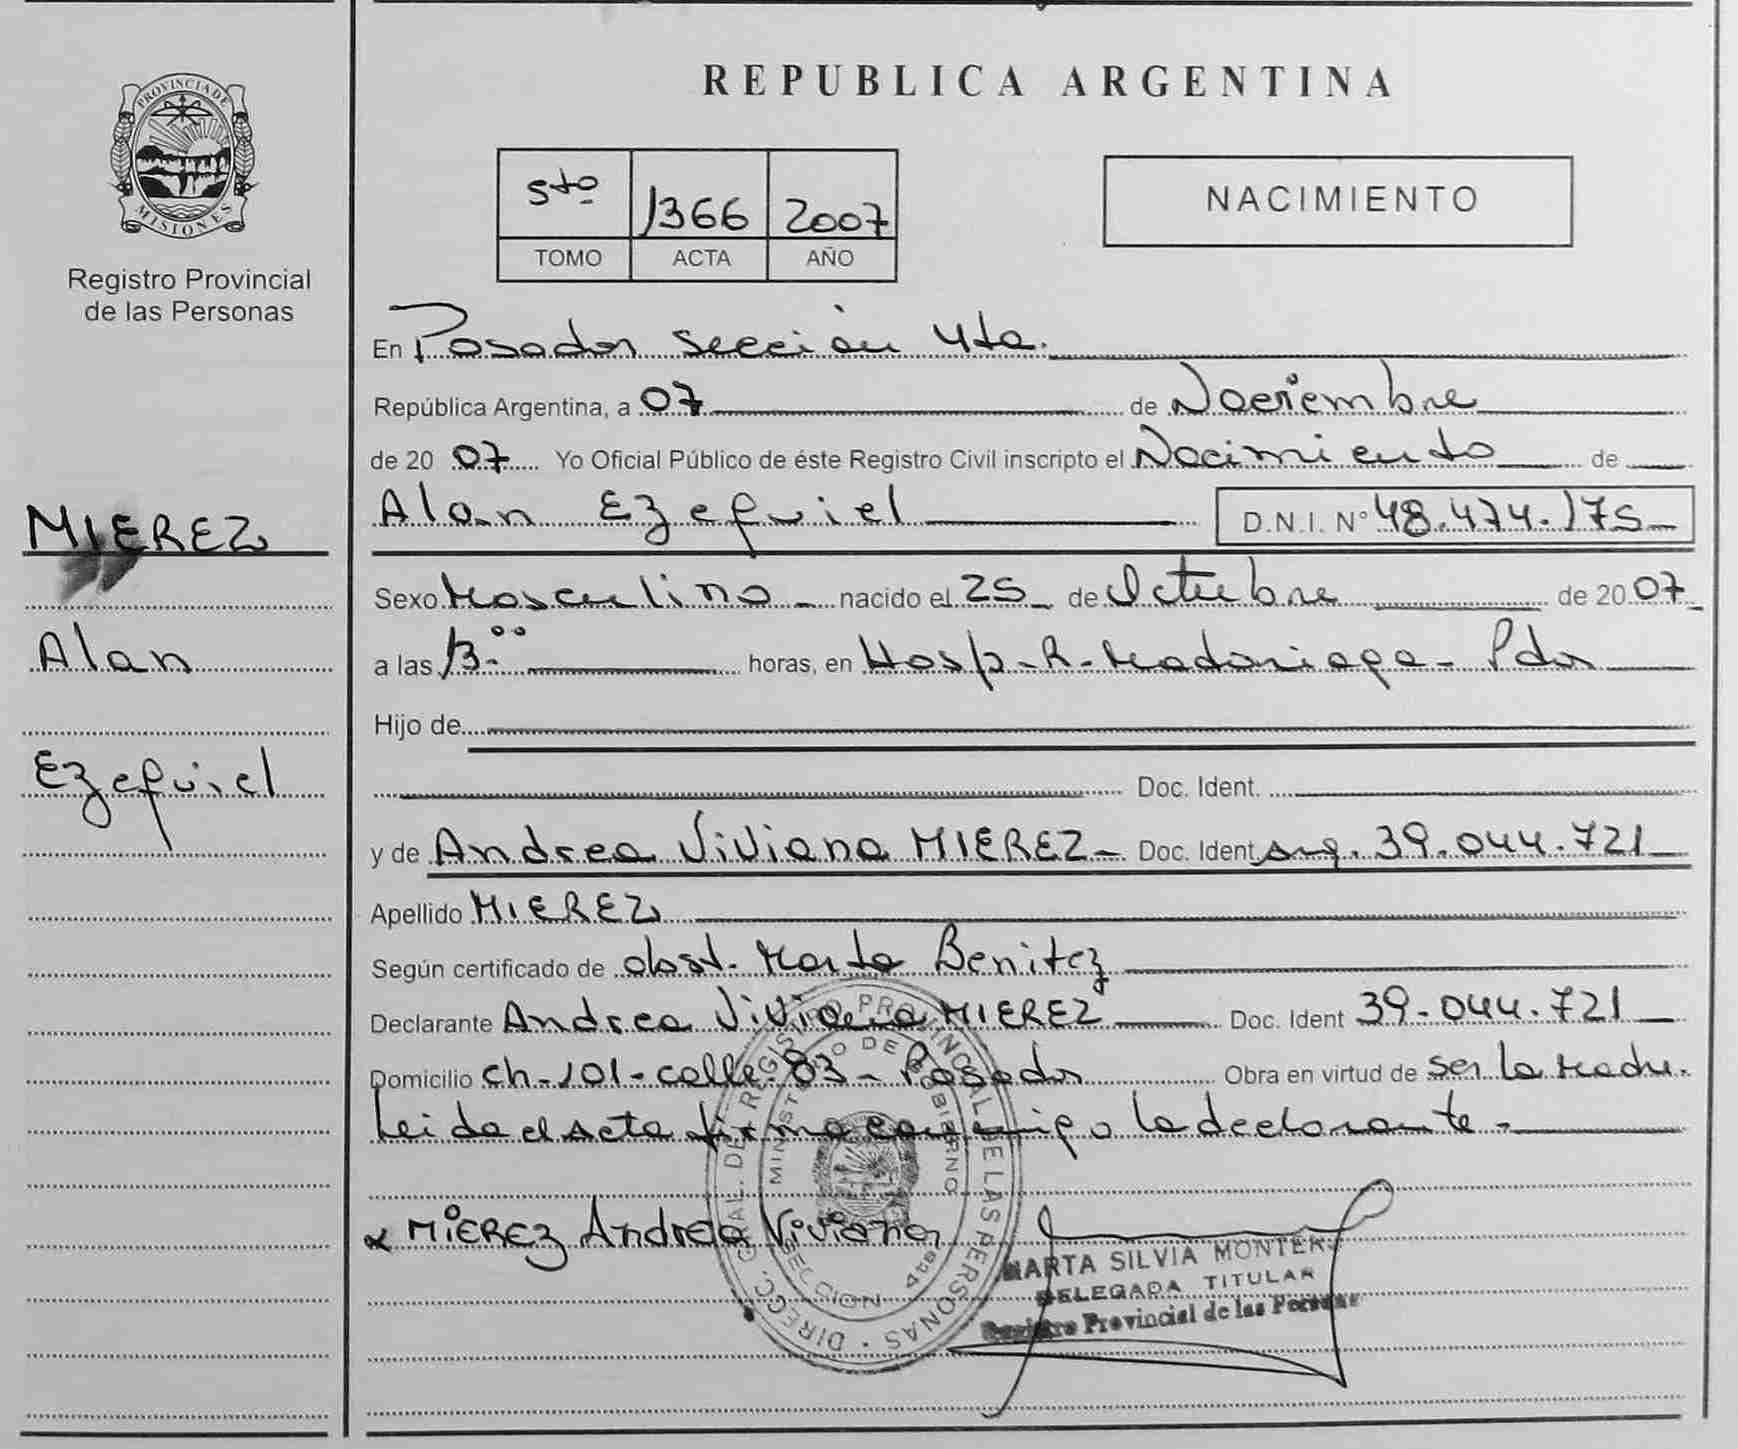 PROVINCIA DE
MISIONES
Registro Provincial
de las Personas
MIEREZ
Alan
Ezequiel
REPUBLICA ARGENTINA
5to 1366 2007
TOMO ACTA AÑO
NACIMIENTO
En Posadas sección 4ta.
República Argentina, a 07 de Noviembre
de 20 07 Yo Oficial Público de éste Registro Civil inscripto el Nacimiento de
Alan Ezequiel D.N.I. Nº 48.474.175
Sexo Masculino nacido el 25 de Octubre de 20 07
a las 13.00 horas, en Hosp-R-Madariaga- Pdas
Hijo de
Doc. Ident.
y de Andrea Viviana MIEREZ Doc. Ident. arg. 39.044.721
Apellido MIEREZ
Según certificado de obst. Marta Benitez
Declarante Andrea Viviana MIEREZ Doc. Ident 39-044.721
Domicilio ch-101-calle 83- Posadas Obra en virtud de ser la madre.
Leida el acta firma conmigo la declarante-
MIEREZ Andrea Viviana
DIRECC. GRAL. DEL REGISTRO PROVINCIAL DE LAS PERSONAS
MINISTERIO DE GOBIERNO
SECCION 4ta
MARTA SILVIA
DELEGADA TITULAR
Registro Provincial de las Personas